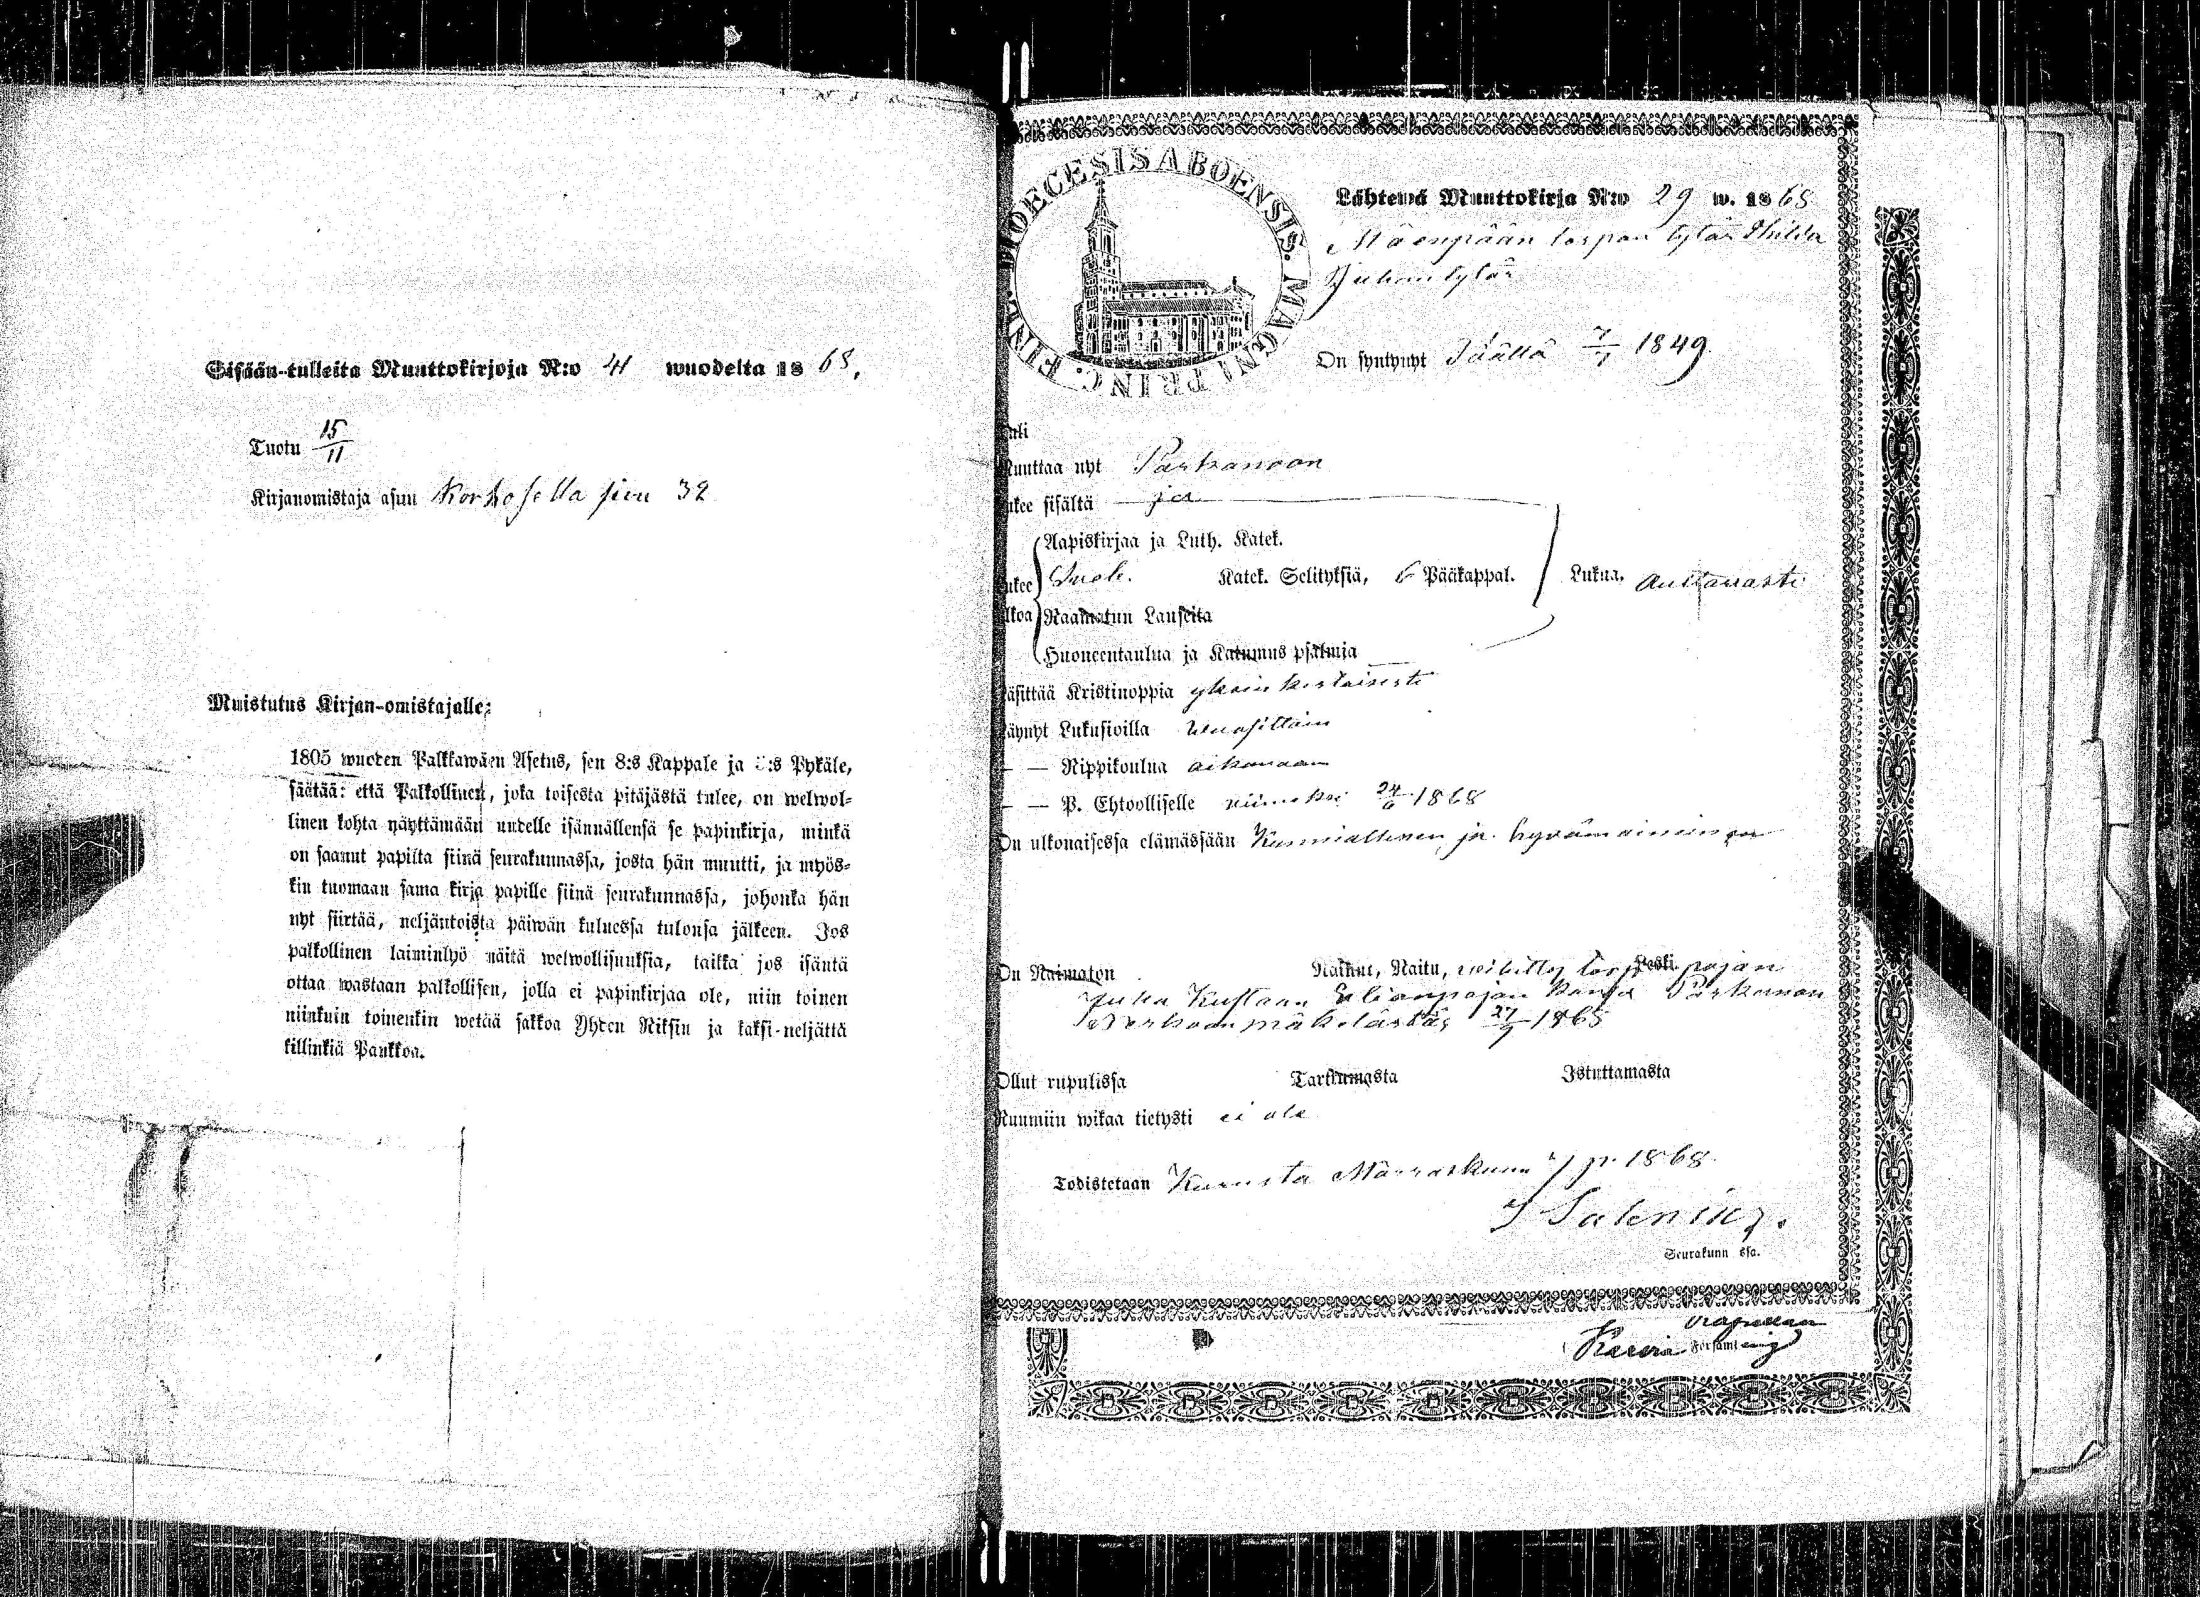 Sisään-tulleita Muuttokirjoja N:o 41 wuodelta 1868,
Tuotu 15/11
Kirjanomistaja asuu Korhosella sivu 32
Muistutus Kirjan-omistajalle:
1805 wuoden Palkkawäen Asetus, sen 8:s Kappale ja :s Pykäle,
säätää: että Palkollinen, joka toisesta pitäjästä tulee, on welwol-
linen kohta näyttämään uudelle isännällensä se papinkirja, minkä
on saanut papilta siinä seurakunnassa, josta hän muutti, ja myös-
kin tuomaan sama kirja papille siinä seurakunnassa, johonka hän
nyt siirtää, neljäntoista päiwän kuluessa tulonsa jälkeen. Jos
palkollinen laiminlyö näitä welwollisuuksia, taikka jos isäntä
ottaa wastaan palkollisen, jolla ei papinkirjaa ole, niin toinen
niinkuin toinenkin wetää sakkoa Yhden Riksin ja kaksi-neljättä
killinkiä Pankkoa.
DIOECESIS ABOENSIS. MAGNI PRINC. FINL.
Lähtewä Muuttokirja N:o 29 w. 1868
Mäenpään torpan tytär Hilda
Juhontytär
On syntynyt Täällä 7/1 1849.
uli
uuttaa nyt Parkanoon
ukee sisältä ja
Aapiskirjaa ja Luth. Katek.
ukee Katek. Selityksiä, 6 Pääkappal. Lukua. auttavasti
lkoa Raamatun Lauseita
Huoneentaulua ja Katumus psalmja
äsittää Kristinoppia yksinkertaisesti
äynyt Lukusioilla wuosittain
— — Rippikoulua aikanaan
— — P. Ehtoolliselle viimeksi 24/6 1868
On ulkonaisessa elämässään Kunniallinen ja hyvämaininen
On Naimaton Nainut, Naitu, Leski. vihitty torp. pojan
Juha Kustaan pojan kansa Parkanon
27/9 1868
Ollut rupulissa Tarttumasta Istuttamasta
Ruumiin wikaa tietysti ei ole
Todistetaan Kurusta Marraskuun p. 1868.
Salenius.
Seurakunn ssa.
Församling